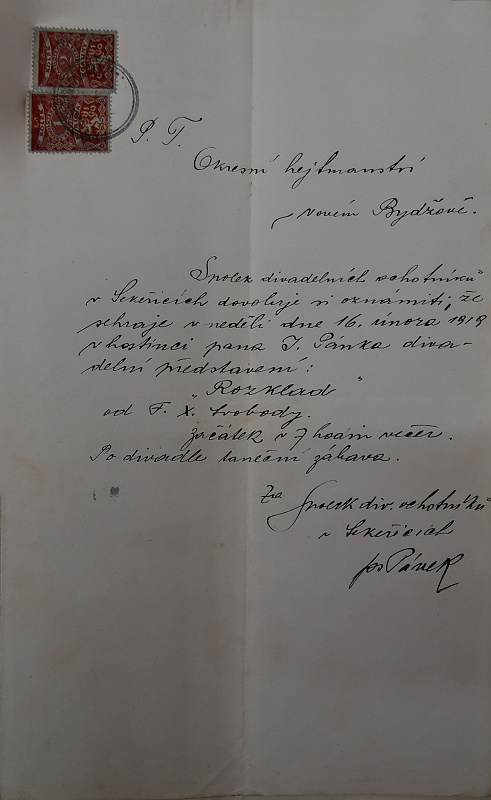 P. T.
Okresní hejtmanství
v Novém Bydžově.
Spolek divadelních ochotníků
v Sekeřicích dovoluje si oznámiti, že
sehraje v neděli dne 16. února 1919
v hostinci pana J. Pánka diva-
delní představení:
„Rozklad"
od F. X. Svobody.
Začátek v 7 hodin večer.
Po divadle taneční zábava.
Za Spolek div. ochotníků
v Sekeřicích
Jos Pánek